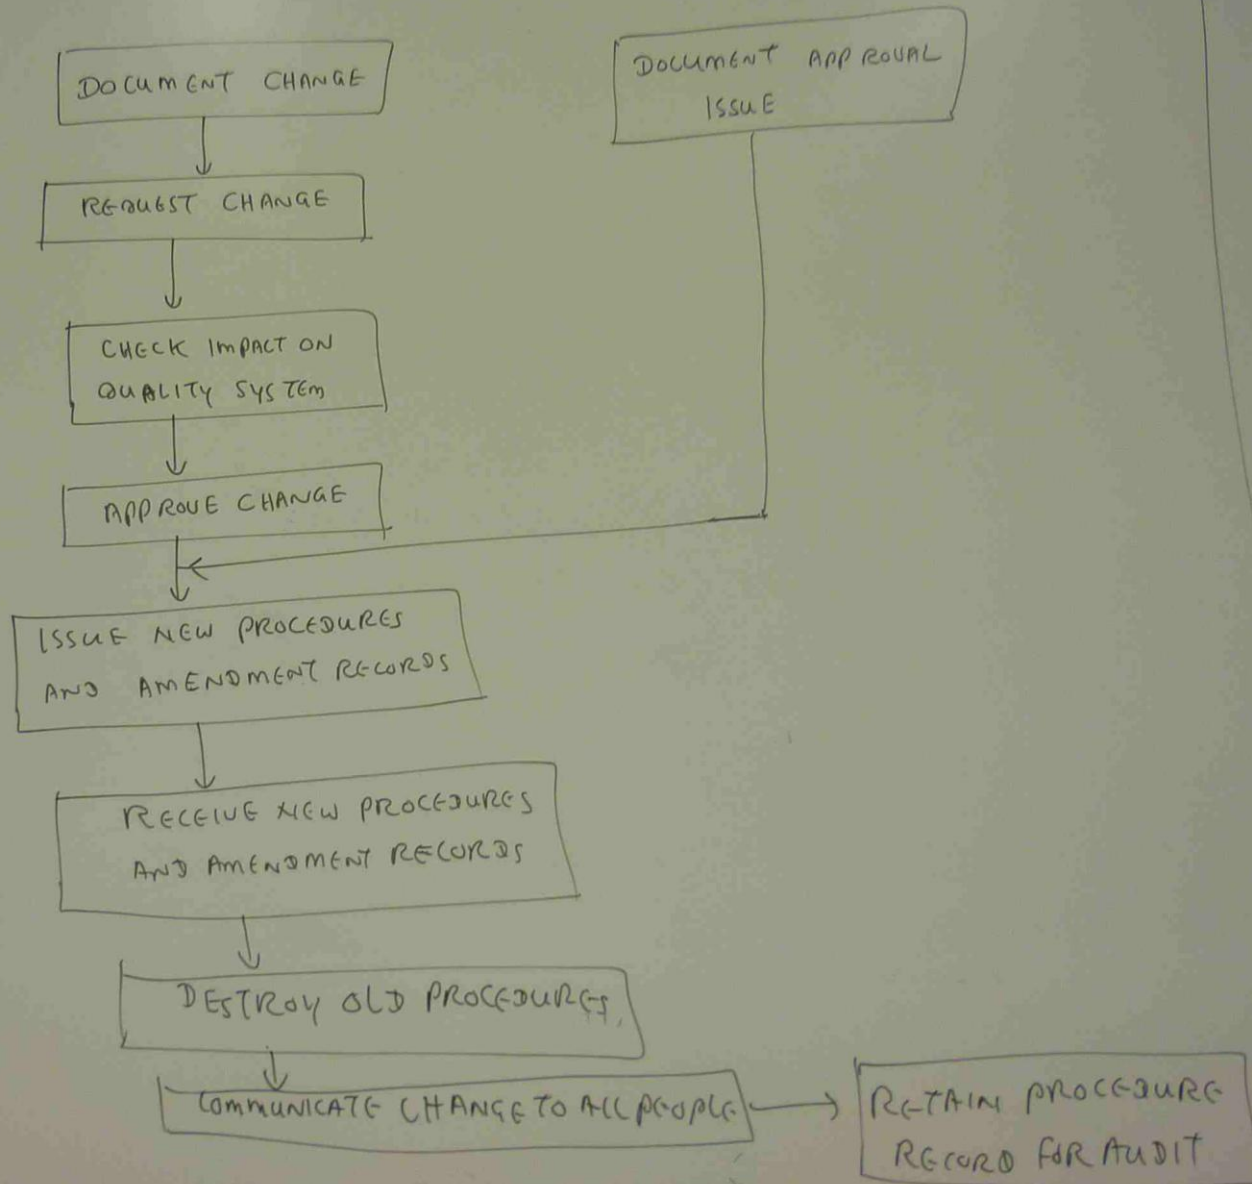 DOCUMENT CHANGE
DOCUMENT APPROVAL
ISSUE
REQUEST CHANGE
CHECK IMPACT ON
QUALITY SYSTEM
APPROVE CHANGE
ISSUE NEW PROCEDURES
AND AMENDMENT RECORDS
RECEIVE NEW PROCEDURES
AND AMENDMENT RECORDS
DESTROY OLD PROCEDURES.
COMMUNICATE CHANGE TO ALL PEOPLE
RETAIN PROCEDURE
RECORD FOR AUDIT